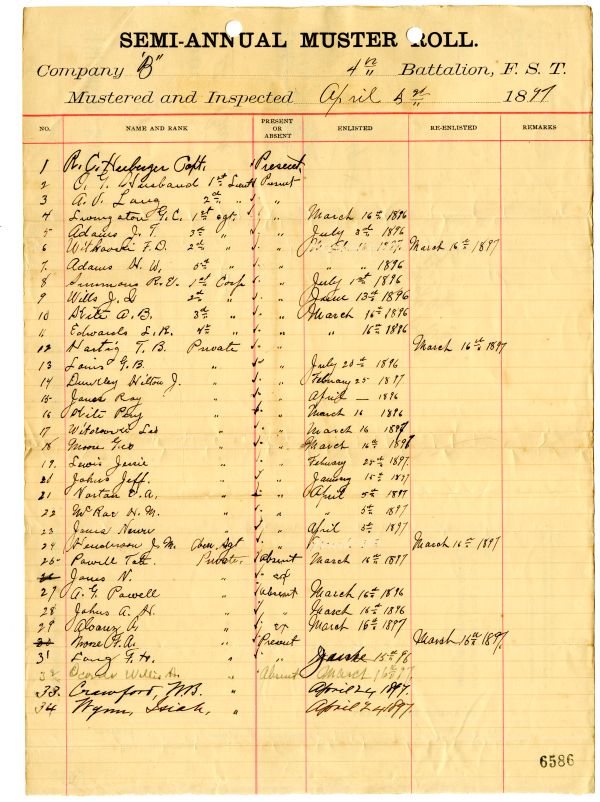 SEMI-ANNUAL MUSTER ROLL.
Company "B" 4th Battalion, F. S. T.
Mustered and Inspected April 1897
NO. NAME AND RANK PRESENT OR ABSENT ENLISTED RE-ENLISTED REMARKS
1 R. C. Capt. Present
2 Husband 1st Lieut Present
3 A. P. Lang 2nd " "
4 Livingston G. C. 1st Sgt. " March 16th 1896
5 Adams J. T. 3rd " " July 3rd 1896
6 F. D. 2nd " " March 16th 1897
7 Adams H. W. 5th " " " " 1896
8 Simmons R. E. 1st Corp " July 1st 1896
9 Wills J. D 2nd " " June 13th 1896
10 Kite A. B. 3rd " " March 16th 1896
11 Edwards L. R. 4th " " " 16th 1896
12 Hartig T. B. Private " March 16th 1897
13 Louis G. B. " " July 20th 1896
14 Dunkley Hilton J. " " February 25 1897
15 James Roy " " April — 1896
16 Kite Perry " " March 16 1896
17 " " March 16 1897
18 Moore Geo " " March 16th 1897
19 Lewis Jessie " " February 25th 1897.
20 Johns Jeff. " " January 15th 1897
21 Norton E. A. " " April 5th 1897
22 McRae H. M. " " " 5th 1897
23 James " " April 5th 1897
24 Henderson J. M. Sgt " March 16th 1897
25 Powell Tate Private. Absent March 16th 1897
26 Jones N. "
27 A. G. Powell " absent March 16th 1896
28 Johns A. H. " " March 16th 1896
29 Alvarez A. " March 16th 1897
30 A. " Present March 16th 1897.
31 Long F. H. " " 15th 98
32 Willis H. " Absent March 16th 97
33. Crawford, W B. " April 24, 1897.
34 Wynn, Isiah, " April 24 1897.
6586